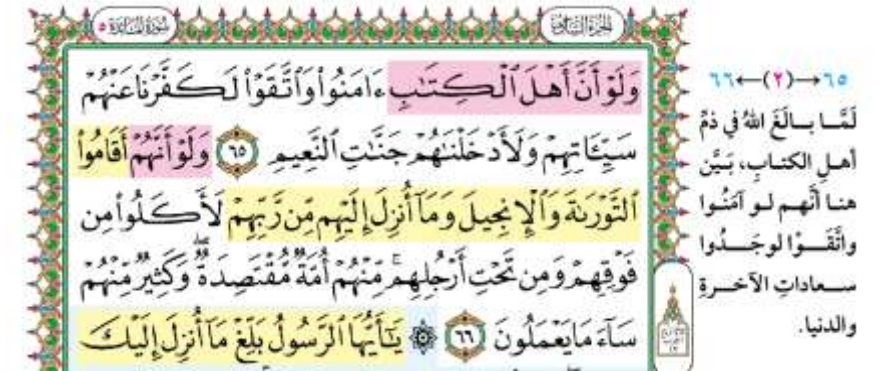 سُورَةُ المَائِدَةِ ٥
الجُزْءُ السَّادِسُ
وَلَوۡ أَنَّ أَهۡلَ ٱلۡكِتَٰبِ ءَامَنُواْ وَٱتَّقَوۡاْ لَكَفَّرۡنَا عَنۡهُمۡ
سَيِّـَٔاتِهِمۡ وَلَأَدۡخَلۡنَٰهُمۡ جَنَّٰتِ ٱلنَّعِيمِ ٦٥ وَلَوۡ أَنَّهُمۡ أَقَامُواْ
ٱلتَّوۡرَىٰةَ وَٱلۡإِنجِيلَ وَمَآ أُنزِلَ إِلَيۡهِم مِّن رَّبِّهِمۡ لَأَكَلُواْ مِن
فَوۡقِهِمۡ وَمِن تَحۡتِ أَرۡجُلِهِمۚ مِّنۡهُمۡ أُمَّةٞ مُّقۡتَصِدَةٞۖ وَكَثِيرٞ مِّنۡهُمۡ
سَآءَ مَا يَعۡمَلُونَ ٦٦ ۞ يَٰٓأَيُّهَا ٱلرَّسُولُ بَلِّغۡ مَآ أُنزِلَ إِلَيۡكَ
٦٥→(٢)←٦٦
لَمَّا بالَغَ اللهُ في ذمِّ
أهلِ الكتابِ، بَيَّن
هنا أنَّهم لو آمَنُوا
واتَّقَوْا لوجَدُوا
سعاداتِ الآخرةِ
والدنيا.